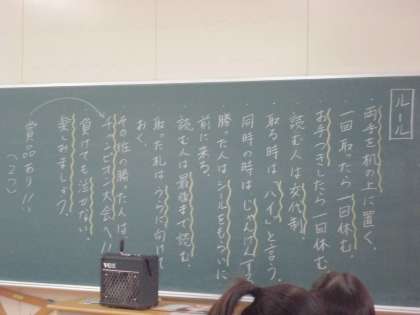 ルール
・両手を机の上に置く。
・一回取ったら一回休む。
・お手つきしたら一回休む。
・読む人は交代制。
・取る時は「ハイ」と言う。
・同時の時はじゃんけん
・勝った人はシールをもらいに
前に来る。
・読む人は最後まで読む。
・取った札はうらに向けて
おく。
・その班の勝った人は
チャンピオン大会へ!!
・負けても泣かない。
・楽しみましょう。
賞品あり!!
VOX